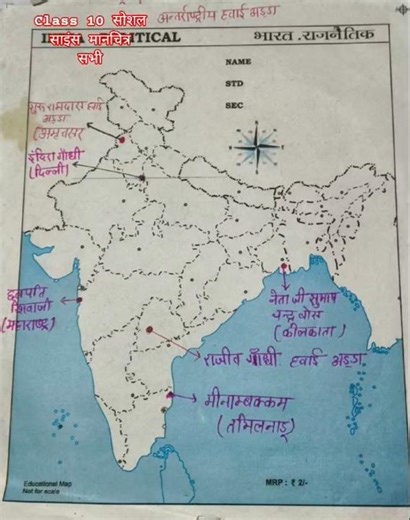 Class 10 सोशल
साइंस मानचित्र
सभी
अन्तर्राष्ट्रीय हवाई अड्डा
भारत .राजनैतिक
NAME
STD
SEC
गुरु रामदास हवाई
अड्डा
(अमृतसर)
इंदिरा गाँधी
(दिल्ली)
छत्रपति
शिवाजी
(महाराष्ट्र)
नेता जी सुभाष
चन्द्र बोस
(कोलकाता)
राजीव गाँधी हवाई अड्डा
मीनाम्बक्कम
(तमिलनाडु)
Educational Map
Not for scale
MRP : ₹ 2/-